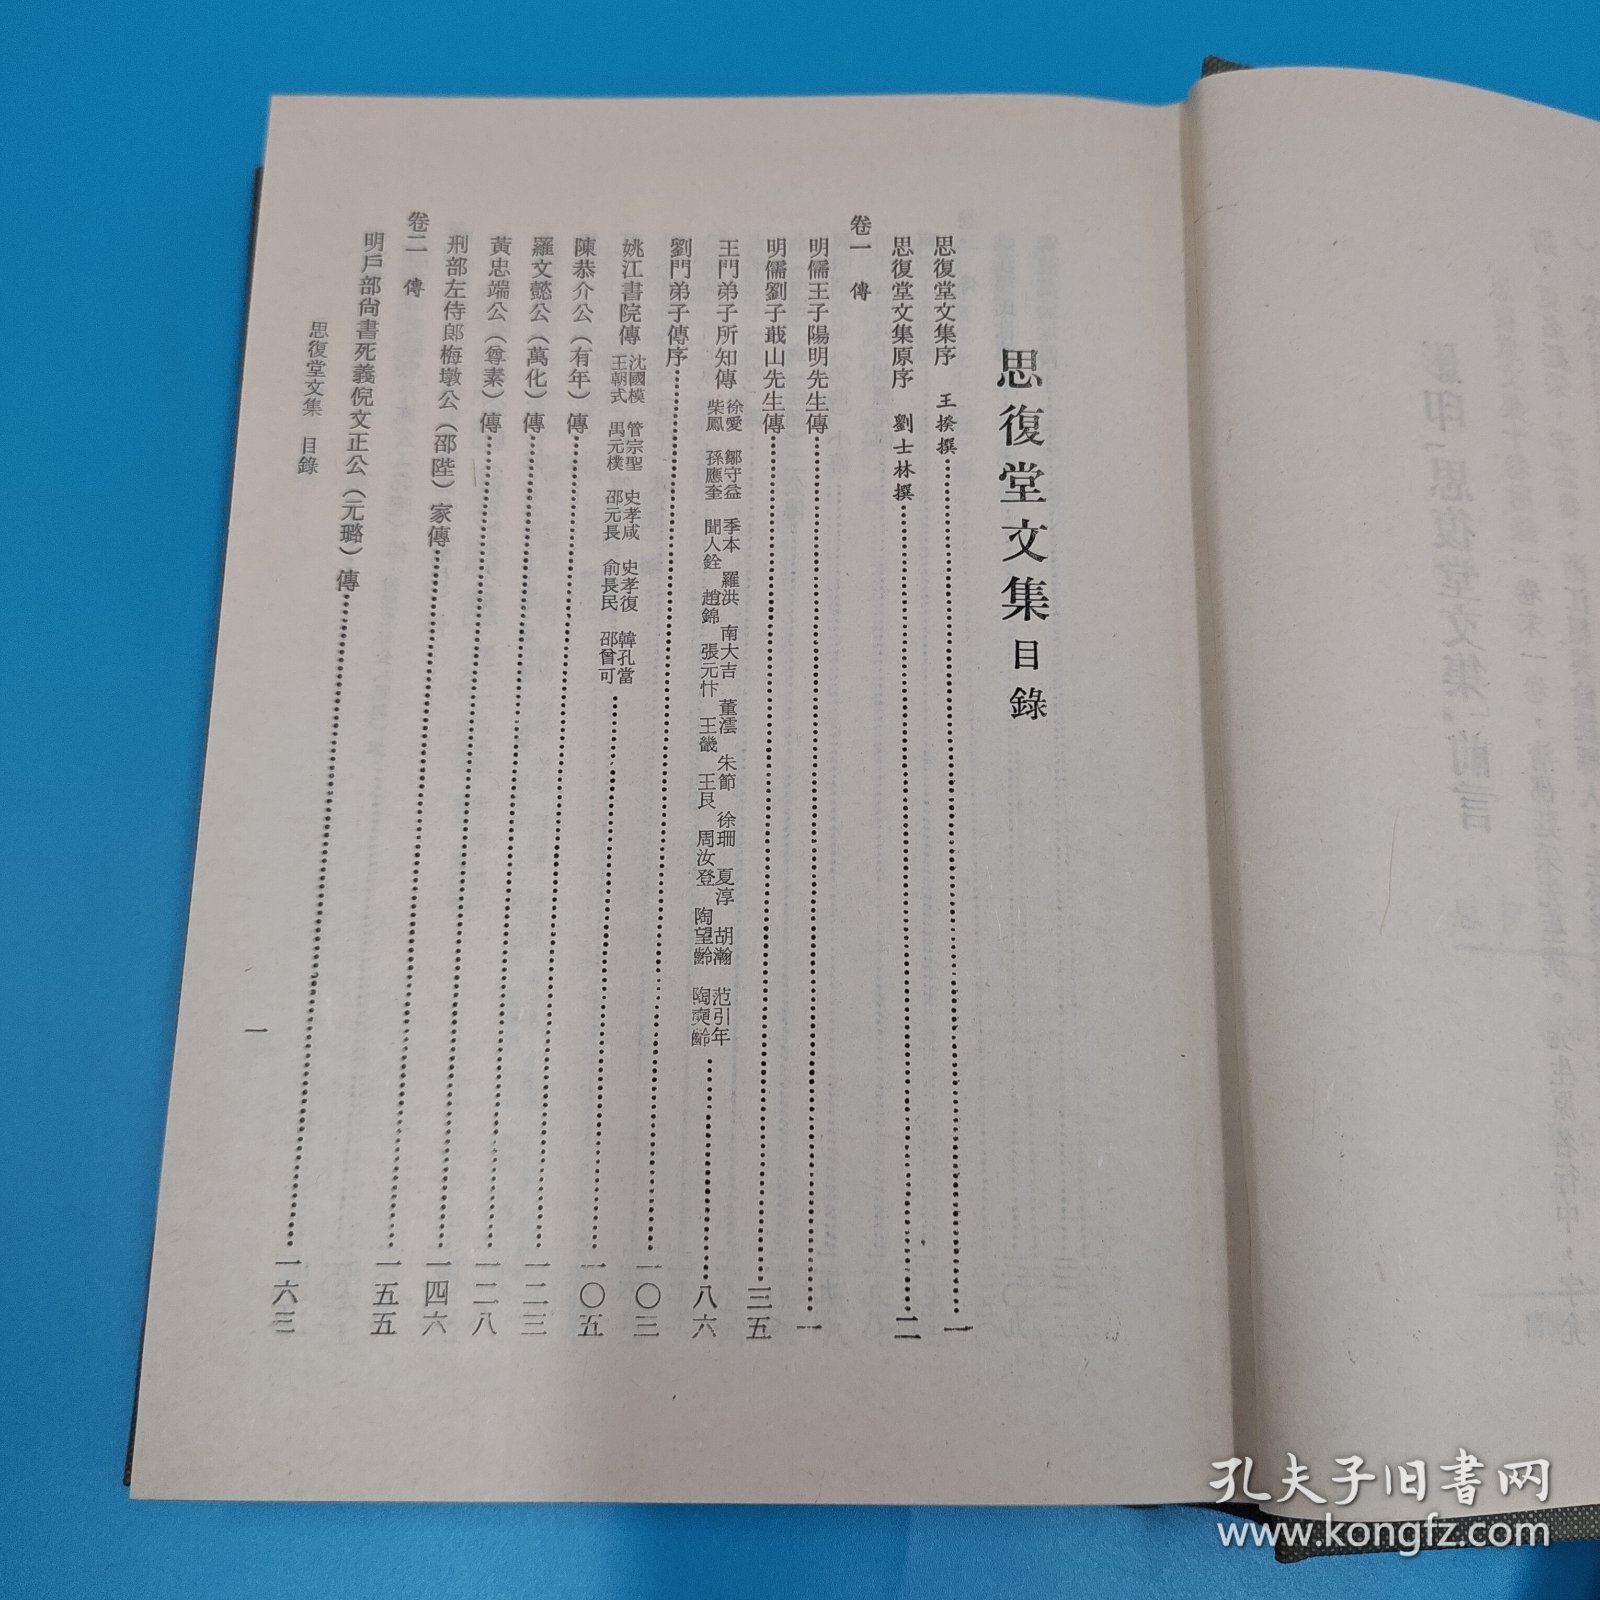 思復堂文集目錄
思復堂文集序　王揆撰……一
思復堂文集原序　劉士林撰……二
卷一　傳
明儒王子陽明先生傳……一
明儒劉子蕺山先生傳……三五
王門弟子所知傳　徐愛　鄒守益　季本　羅洪　南大吉　董澐　朱節　徐珊　夏淳　胡瀚　范引年
柴鳳　孫應奎　聞人銓　趙錦　張元忭　王畿　王艮　周汝登　陶望齡　陶奭齡……八六
劉門弟子傳序……一〇三
姚江書院傳　沈國模　管宗聖　史孝咸　史孝復　韓孔當
王朝式　禺元樸　邵元長　俞長民　邵曾可……一〇五
陳恭介公（有年）傳……一二三
羅文懿公（萬化）傳……一二八
黃忠端公（尊素）傳……一四六
刑部左侍郎梅墩公（邵陛）家傳……一五五
卷二　傳
明戶部尚書死義倪文正公（元璐）傳……一六三
思復堂文集　目錄
一
孔夫子旧书网
www.kongfz.com